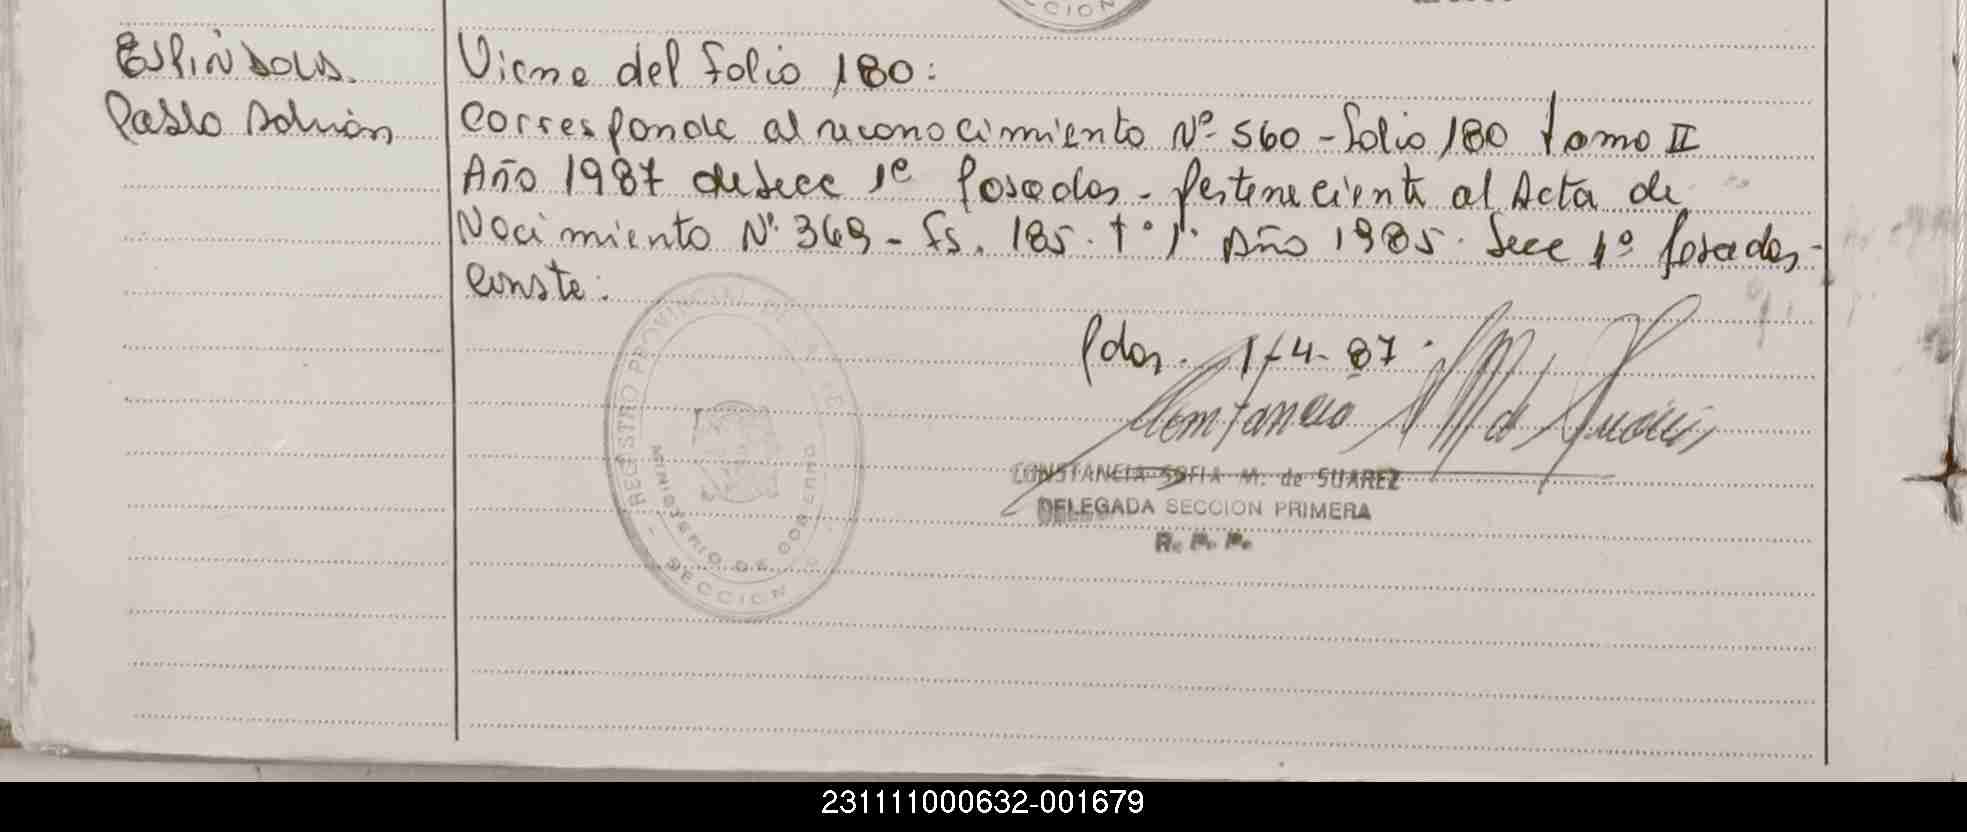 Espíndola.
Pablo Adrián
Viene del folio 180:
Corresponde al reconocimiento Nº 560 - folio 180 tomo II
Año 1987 de Secc 1º Posadas - perteneciente al Acta de
Nacimiento Nº 369 - fs. 185. tº 1. Año 1985. Secc 1º Posadas -
Conste:
Pdas. 1-4-87.
CONSTANCIA SOFIA M. de SUAREZ
DELEGADA SECCION PRIMERA
R. P. P.
REGISTRO PROVINCIAL DE
MINISTERIO DE GOBIERNO
SECCION
CCION
231111000632-001679